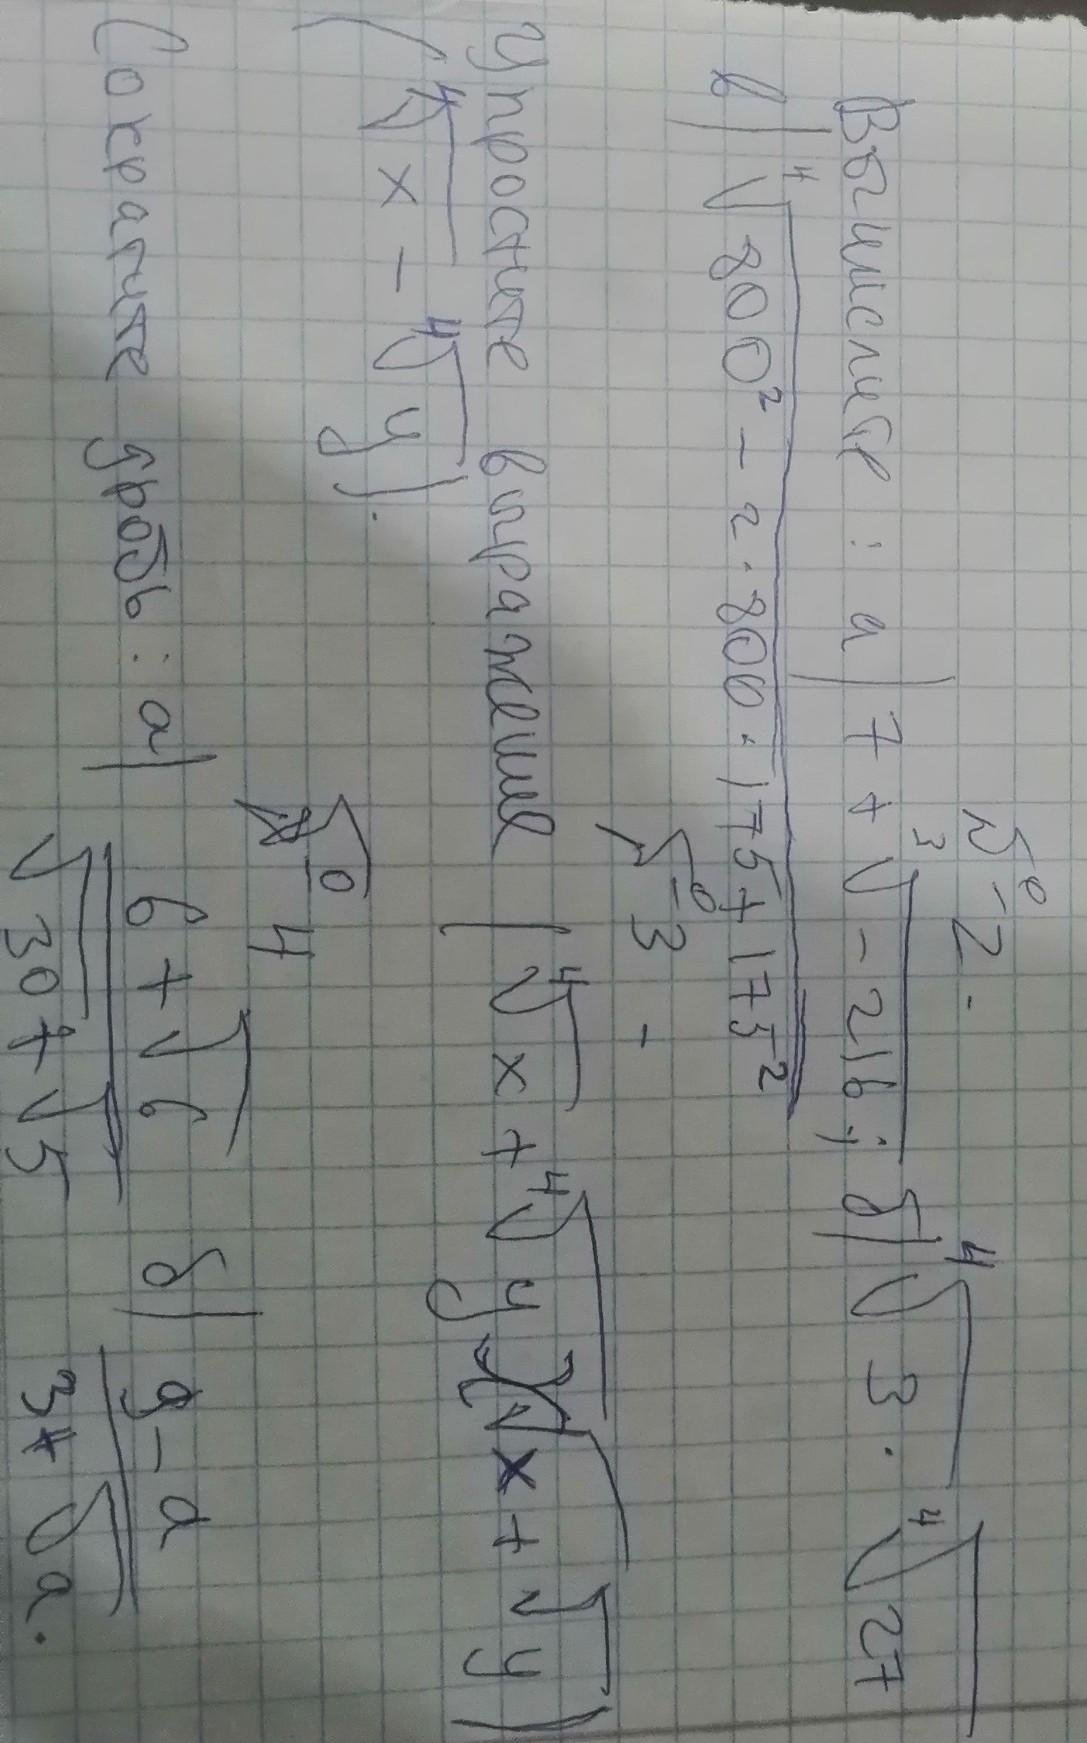 № 2.
Вычислите: а) 7 + ³√-216; б) ⁴√3 · ⁴√27
в) ⁴√800² - 2 · 800 · 175 + 175²
№ 3.
Упростите выражение (⁴√x + ⁴√y)(√x + √y)
(⁴√x - ⁴√y).
№ 4
Сократите дробь: а) 6 + √6 / √30 + √5 б) 9 - a / 3 + √a.